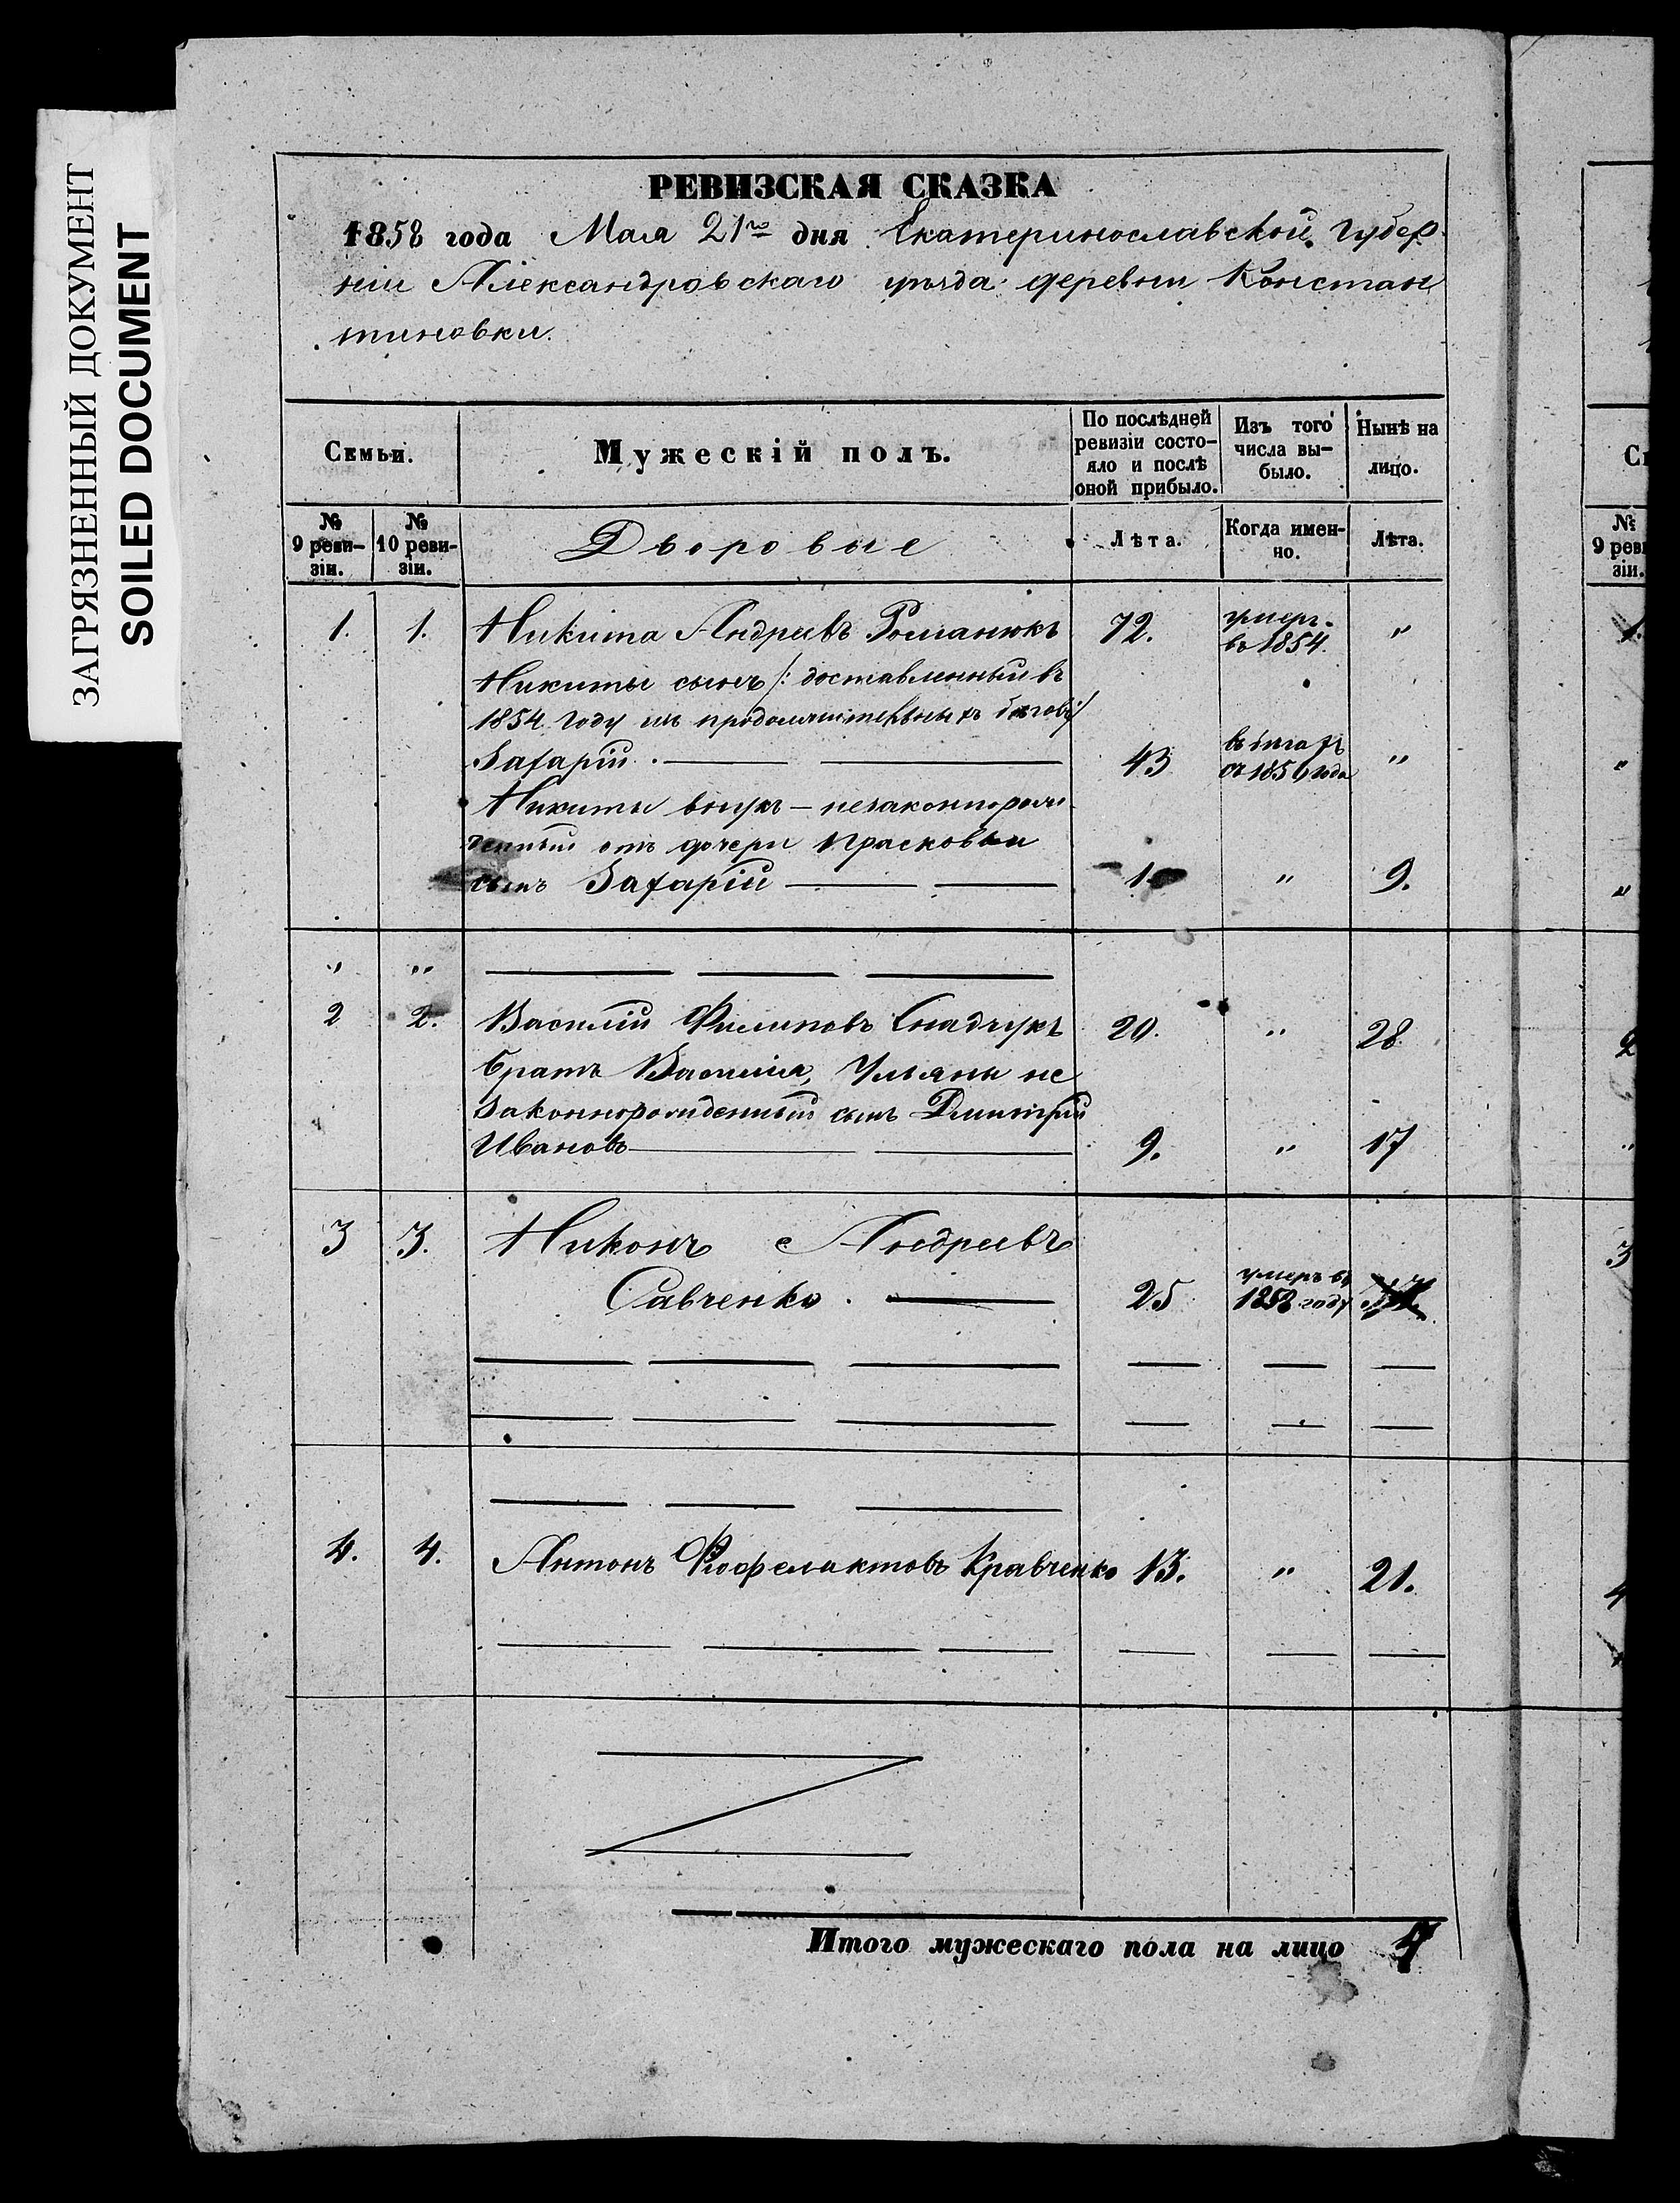 ЗАГРЯЗНЕННЫЙ ДОКУМЕНТ
SOILED DOCUMENT
РЕВИЗСКАЯ СКАЗКА
1858 года Мая 21го дня Екатеринославской Губер
ніи Александровскаго уѣзда деревни Констан
тиновки.
Семьи.
Мужескій полъ.
По послѣдней ревизіи состо-
яло и послѣ оной прибыло.
Изъ того числа вы-
было.
Нынѣ на лицо.
№ 9 реви-
зіи.
№ 10 реви-
зіи.
Дворовые
Лѣта.
Когда имен-
но.
Лѣта.
1. 1. Никита Андреевъ Романюкъ 72. умеръ въ 1854. "
Никиты сынъ /: доставленный въ
1854 году изъ продолжительныхъ бѣговъ/
Захарій 43 въ бѣгахъ съ года "
Никиты внукъ – незаконнорож
денный отъ дочери Прасковьи
сынъ Захарій 1 " 9.
" "
2 2. Василій Филиповъ 20. " 28
Братъ Василія, Ульяны не
законнорожденный сынъ Дмитрий
Ивановъ 9. " 17
3 3. Никонъ Андреевъ
Савченко. 25 умеръ въ 1858 году
4. 4. Антонъ Фіофелактовъ Кравченко 13. " 21.
Итого мужескаго пола на лицо 4
Се
№ 9 реви
зіи.
1.
"
"
2
"
3
4